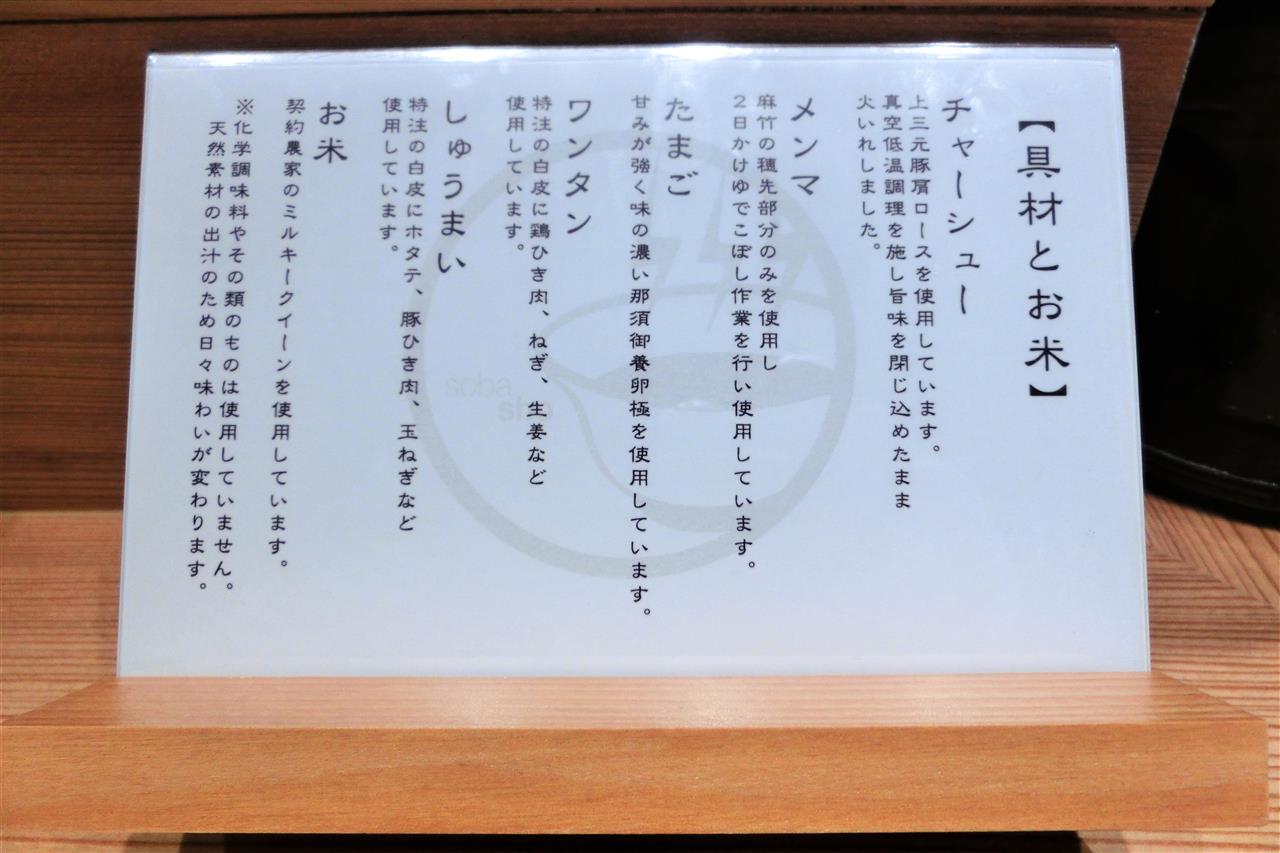 【具材とお米】
チャーシュー
上三元豚肩ロースを使用しています。
真空低温調理を施し旨味を閉じ込めたまま
火いれしました。
メンマ
麻竹の穂先部分のみを使用し
2日かけゆでこぼし作業を行い使用しています。
たまご
甘みが強く味の濃い那須御養卵極を使用しています。
ワンタン
特注の白皮に鶏ひき肉、ねぎ、生姜など
使用しています。
しゅうまい
特注の白皮にホタテ、豚ひき肉、玉ねぎなど
使用しています。
お米
契約農家のミルキークイーンを使用しています。
※化学調味料やその類のものは使用していません。
天然素材の出汁のため日々味わいが変わります。
soba
sho